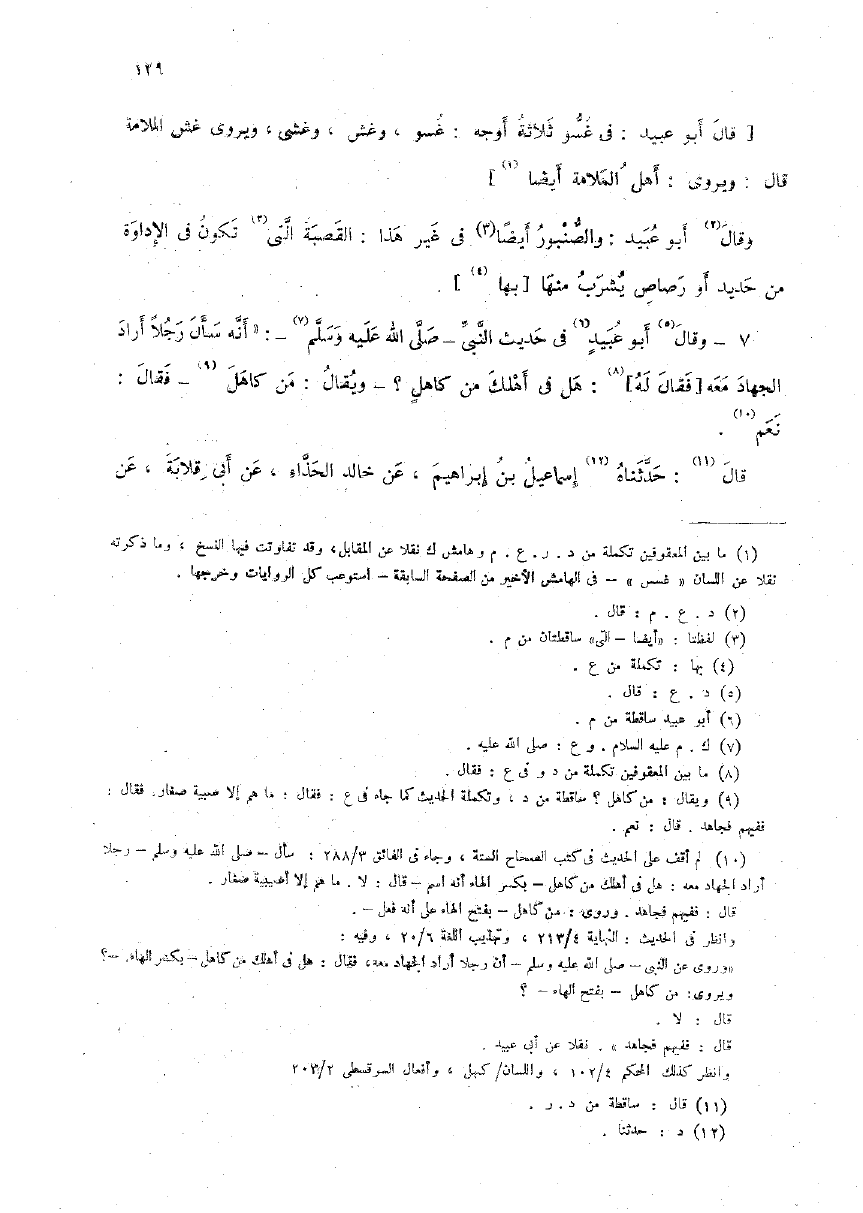 ١٢٩
[ قالَ أبو عبيد : فى غُسُّو ثَلاثَةُ أَوجه : غُسو ، وغش ، وغشى ، ويروى غش الملامة
قال : ويروى : أَهل المَلامة أيضا (١) ]
وقالَ (٢) أبو عُبَيد : والصُّنْبورُ أيضًا (٣) فى غَير هَذا : القَصبَةَ الَّتى (٣) تَكونُ فى الإداوَة
من حَديد أو رَصاصٍ يُشرَبُ منهَا [ بها (٤) ] .
٧ – وقالَ (٥) أبو عُبَيدٍ (٦) فى حَديث النَّبِىِّ – صَلَّى الله عَلَيه وَسَلَّم (٧) – : « أَنَّه سَأَلَ رَجُلاً أرادَ
الجهادَ مَعَه [ فَقالَ لَهُ ] (٨) : هَل فى أَهْلكَ من كاهلٍ ؟ – ويُقالُ : مَن كاهَلَ (٩) – فَقالَ :
نَعَم (١٠) .
قالَ (١١) : حَدَّثَناهُ (١٢) إسماعيلُ بنُ إبراهيمَ ، عَن خالد الحَذَّاءِ ، عَن أَبى قلابَةَ ، عَن
(١) ما بين المعقوفين تكملة من د . ر . ع . م وهامش ك نقلا عن المقابل، وقد تفاوتت فيها النسخ ، وما ذكرته
نقلا عن اللسان « غسس » – فى الهامش الأخير من الصفحة السابقة – استوعب كل الروايات وخرجها .
(٢) د . ع . م : قال .
(٣) لفظتا : «أيضا – التى» ساقطتان من م .
(٤) بها : تكملة من ع .
(٥) د . ع : قال .
(٦) أبو عبيد ساقطة من م .
(٧) ك . م عليه السلام . و ع : صلى الله عليه .
(٨) ما بين المعقوفين تكملة من د و فى ع : فقال .
(٩) ويقال : من كاهل ؟ ساقطة من د ، وتكملة الحديث كما جاء فى ع : فقال : ما هم إلا صبية صغار. فقال :
ففيهم فجاهد . قال : نعم .
(١٠) لم أقف على الحديث فى كتب الصحاح الستة ، وجاء فى الفائق ٢٨٨/٣ : سأل – صلى الله عليه وسلم – رجلا
أراد الجهاد معه : هل فى أهلك من كاهل – بكسر الهاء أنه اسم – قال : لا . ما هم إلا أصيبية صغار .
قال : ففيهم فجاهد . وروى : من كاهل – بفتح الهاء على أنه فعل – .
وانظر فى الحديث : النهاية ٢١٣/٤ ، وتهذيب اللغة ٢٠/٦ ، وفيه :
«وروى عن النبى – صلى الله عليه وسلم – أن رجلا أراد الجهاد معه، فقال : هل فى أهلك من كاهل – بكسر الهاء. –؟
ويروى: من كاهل – بفتح الهاء – ؟
قال : لا .
قال : ففيهم فجاهد » . نقلا عن أبى عبيد .
وانظر كذلك المحكم ١٠٢/٤ ، واللسان/ كهل ، وأفعال السرقسطى ٢٠٣/٢
(١١) قال : ساقطة من د . ر .
(١٢) د : حدثنا .